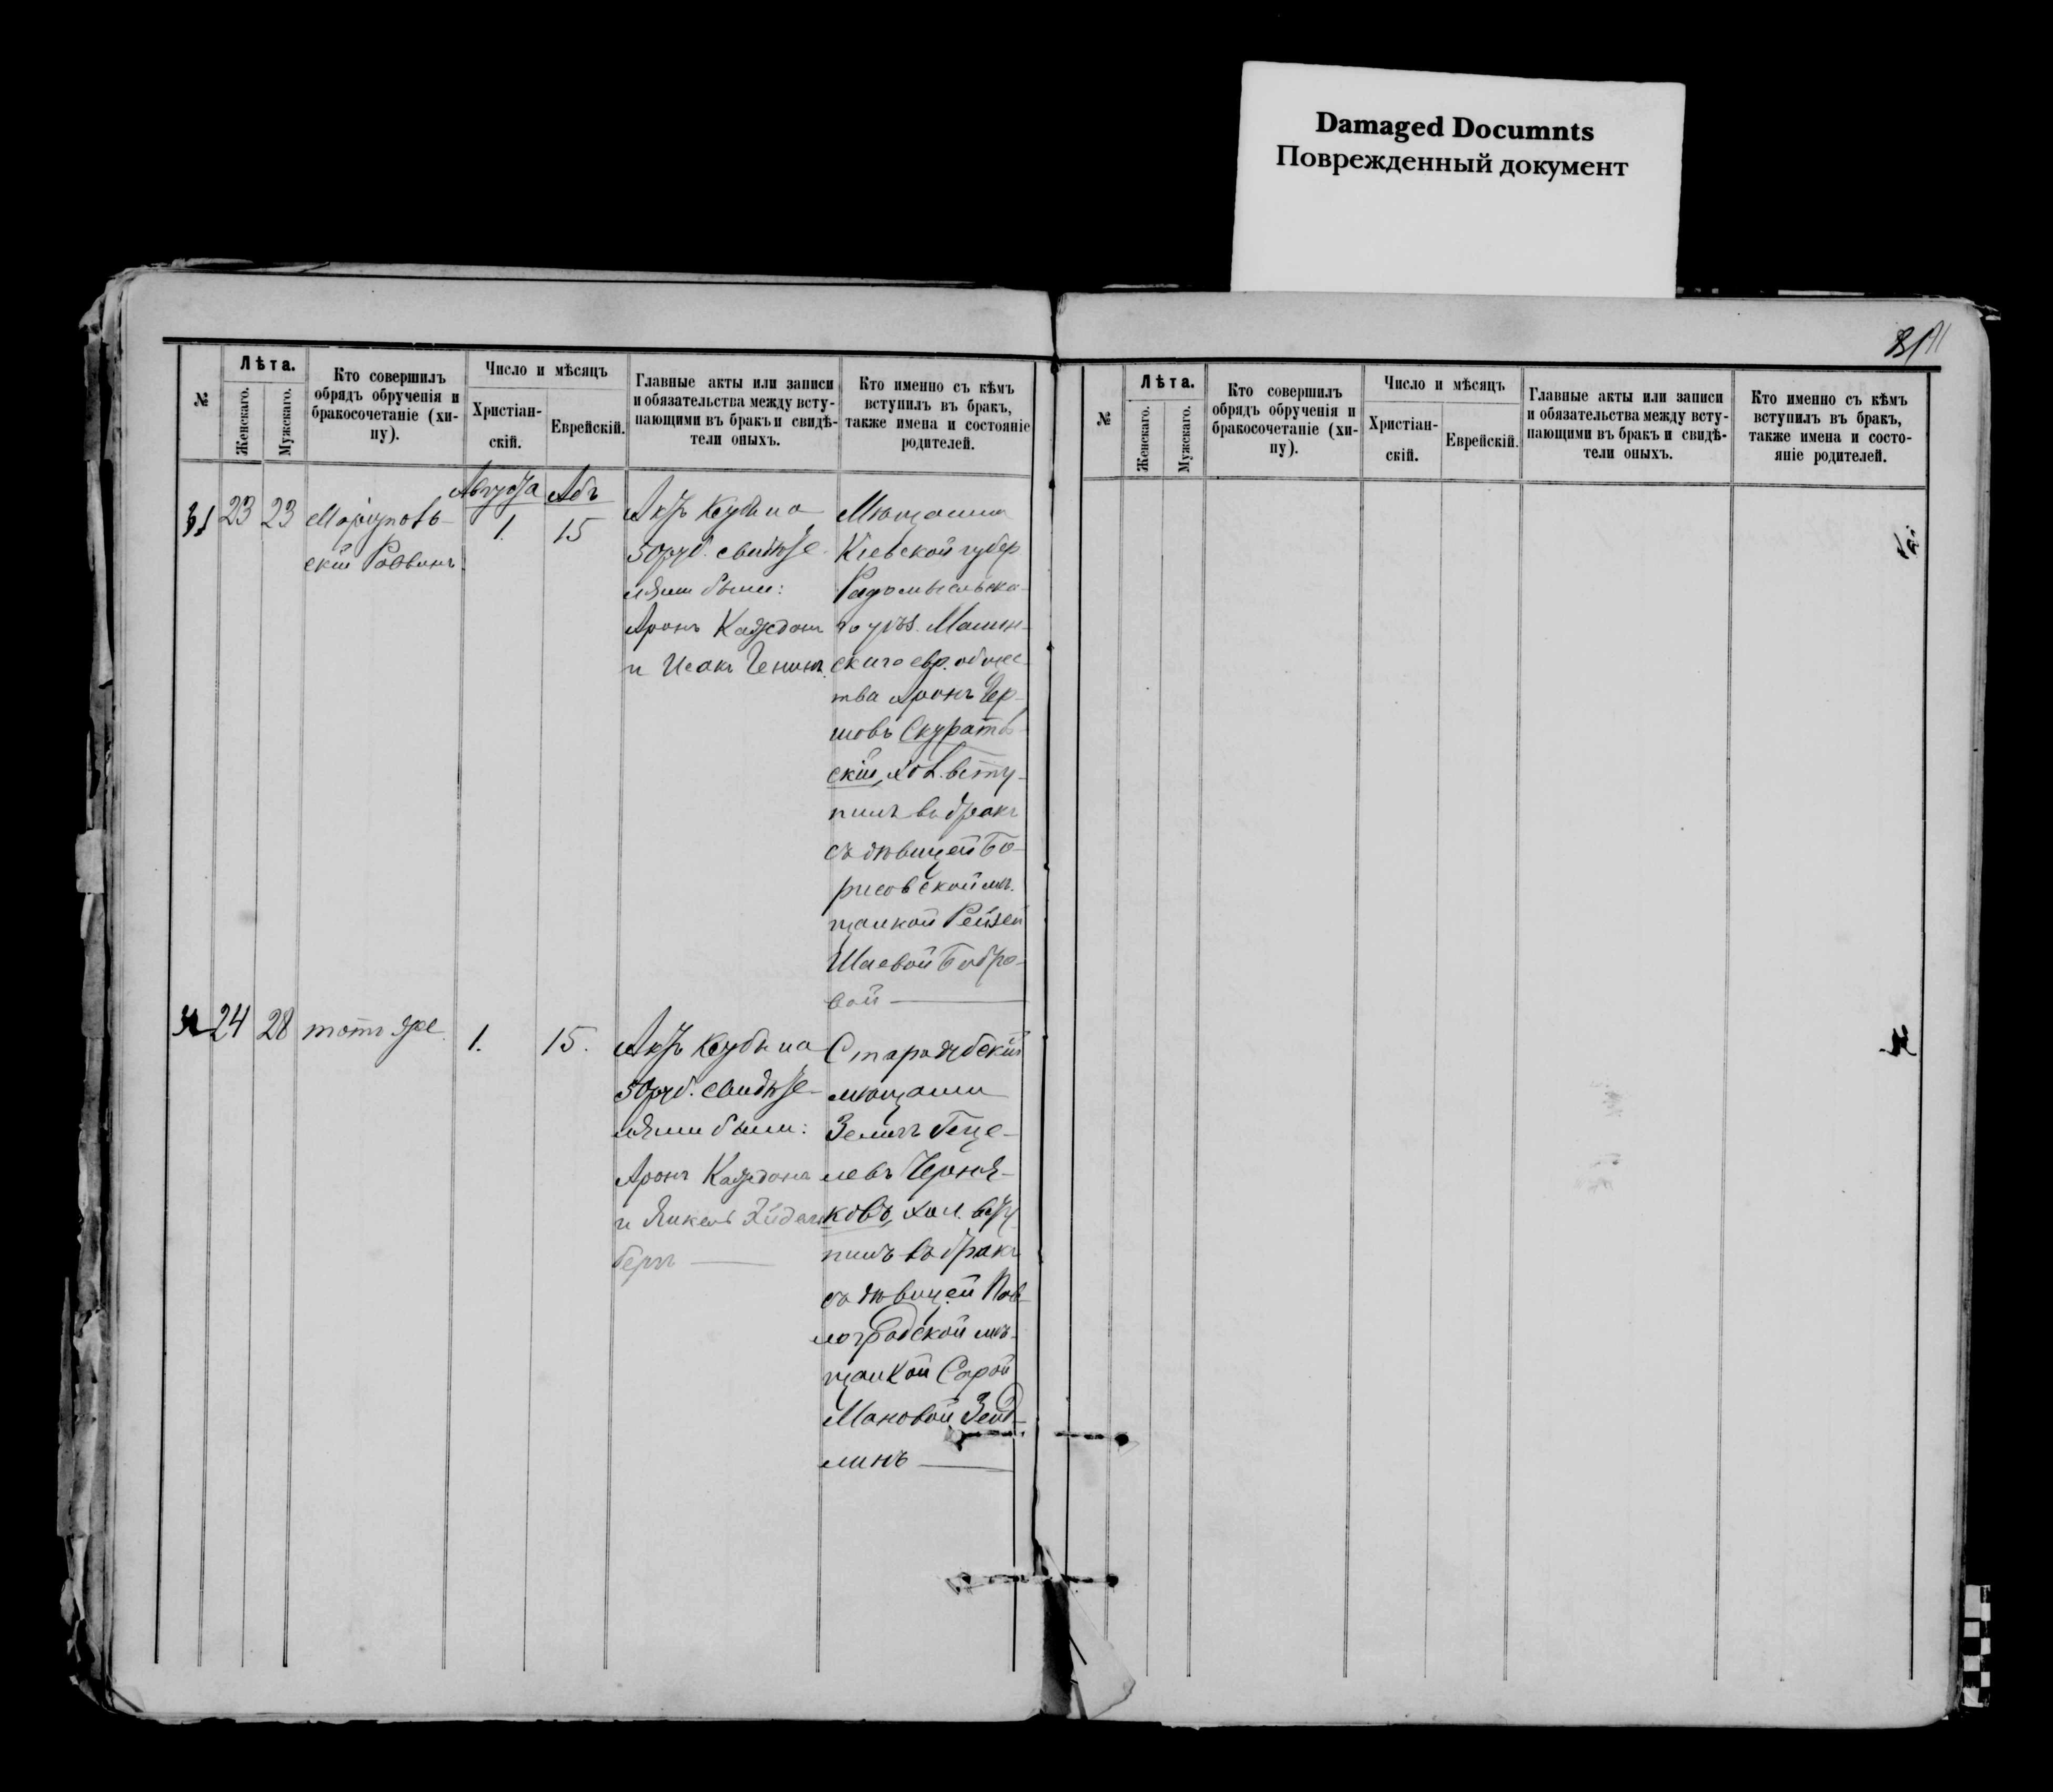 Damaged Documnts
Поврежденный документ
№
Лѣта.
Женскаго.
Мужскаго.
Кто совершилъ
обрядъ обрученія и
бракосочетаніе (хи-
пу).
Число и мѣсяцъ
Христіан-
скій.
Еврейскій.
Главные акты или записи
и обязательства между всту-
пающими въ бракъ и свидѣ-
тели оныхъ.
Кто именно съ кѣмъ
вступилъ въ бракъ,
также имена и состояніе
родителей.
Августа
Абъ
31
23
23
Маріуполь-
скій Раввинъ
1.
15
Актъ Ксуба на
50 руб. свидѣте-
лями были:
Аронъ Каждонъ
и Исакъ Ченинъ.
Мѣщанинъ
Кіевской губер
Радомысльска-
го уѣз. Малин-
скаго евр. общес-
тва Аронъ Гер-
шовъ Скуратов-
скій, хол. всту-
пилъ въ бракъ
съ дѣвицей Бо-
рисовской мѣ-
щанкой Рейзей
Шаевой Бобро-
вой
24
28
тотъ же
1.
15.
Актъ Ксуба на
50 руб. свидѣте-
лями были:
Аронъ Каждонъ
и Янкель
бергъ
Стародубскій
мѣщанин
Зеликъ Геце-
левъ Черня-
ковъ, хол. всту
пилъ въ бракъ
съ дѣвицей Пав-
лоградской мѣ-
щанкой Сарой
Мановой Зейд-
линъ
№
Лѣта.
Женскаго.
Мужскаго.
Кто совершилъ
обрядъ обрученія и
бракосочетаніе (хи-
пу).
Число и мѣсяцъ
Христіан-
скій.
Еврейскій.
Главные акты или записи
и обязательства между всту-
пающими въ бракъ и свидѣ-
тели оныхъ.
Кто именно съ кѣмъ
вступилъ въ бракъ,
также имена и состо-
яніе родителей.